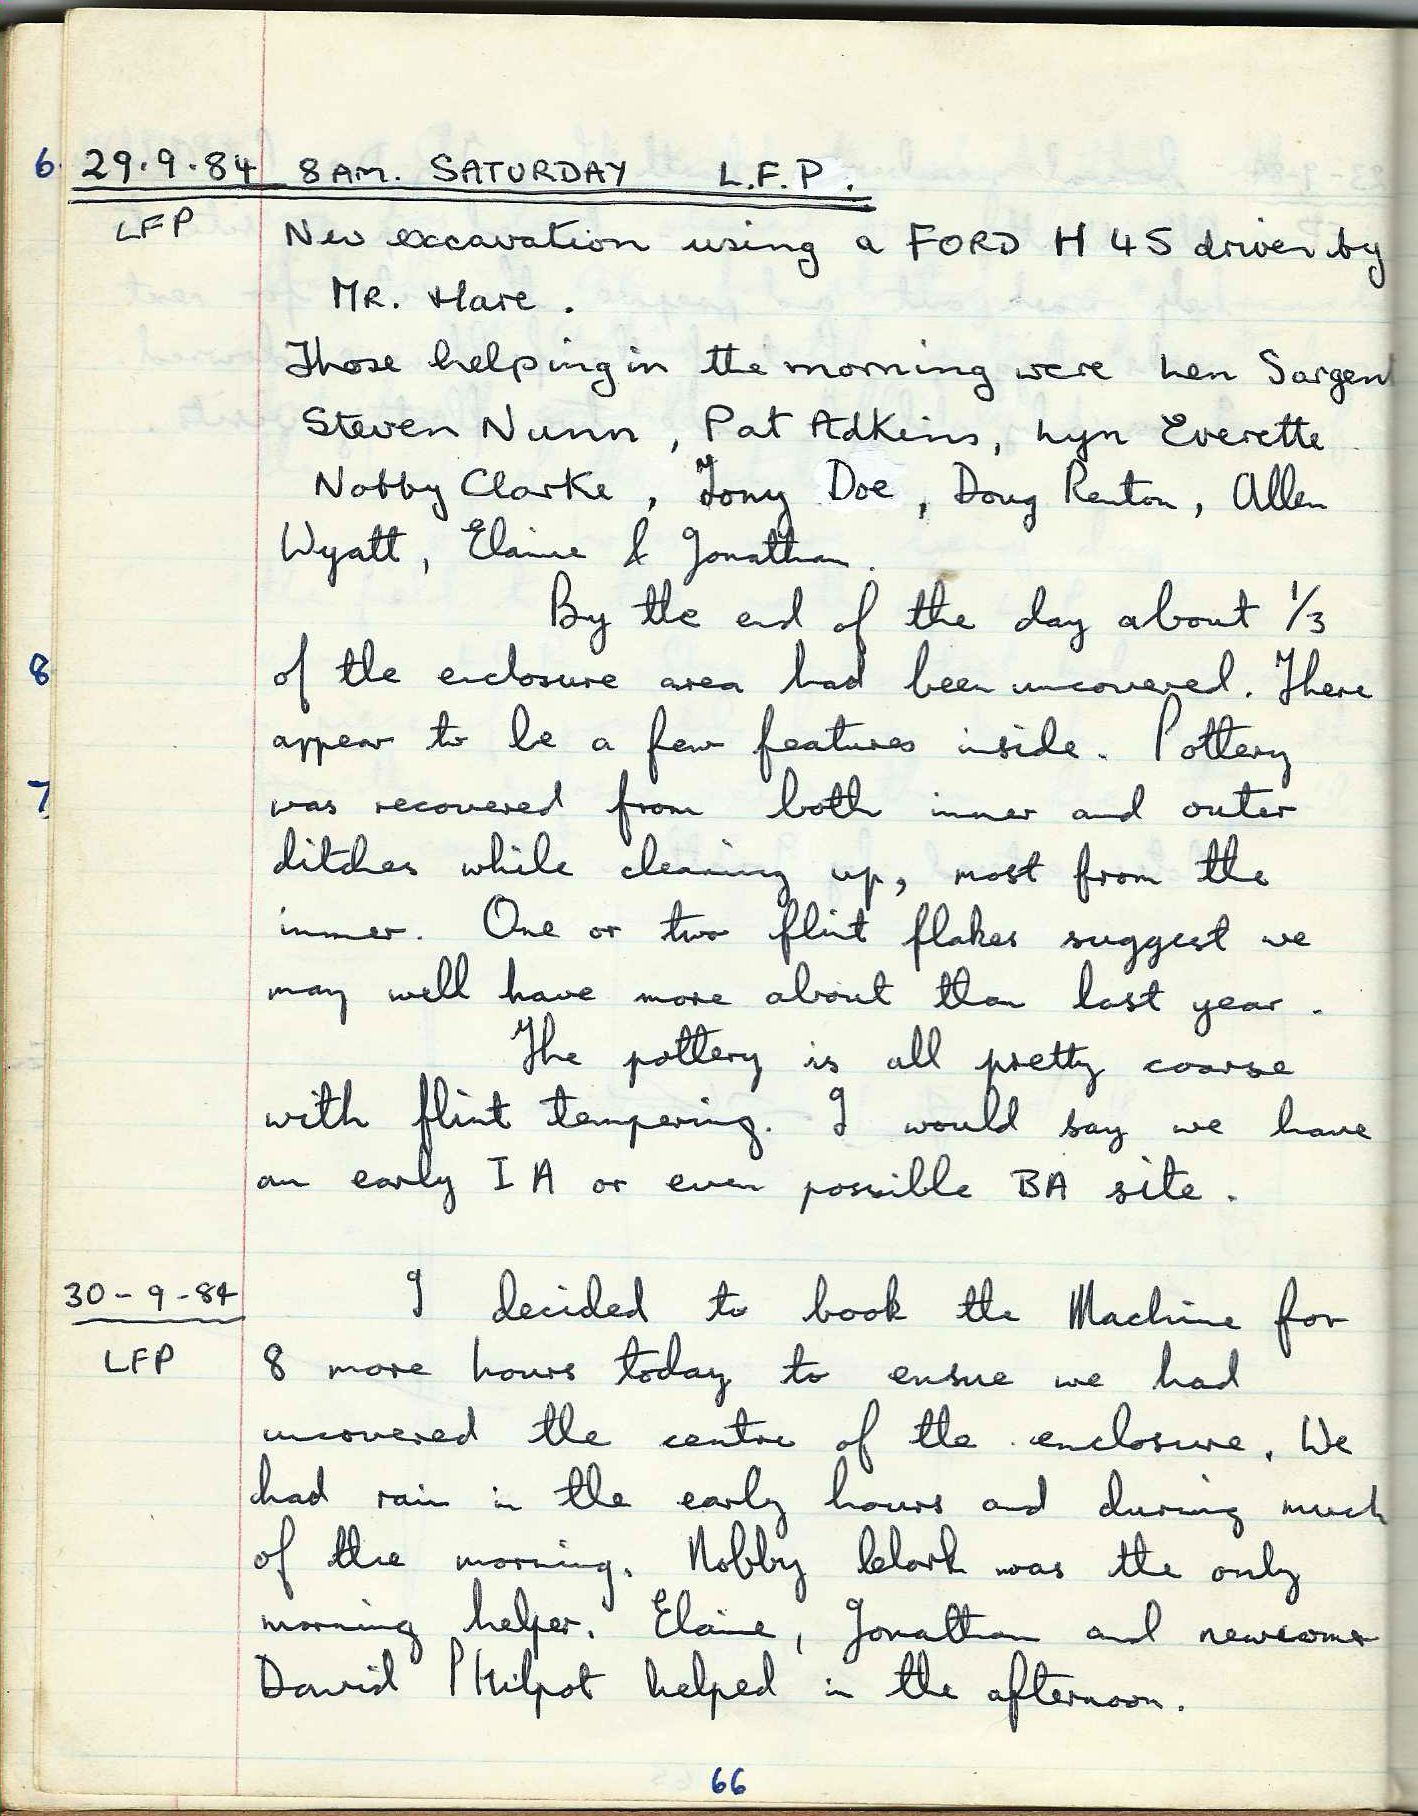 6. 29.9.84 8 AM. SATURDAY L.F.P.
LFP New excavation using a FORD H 45 driven by
MR. Hare.
Those helping in the morning were Len Sargen
Steven Nunn, Pat Adkins, Lyn Everette
Nobby Clarke, Tony Doe, Doug Renton, Allen
Wyatt, Elaine & Jonathan.
By the end of the day about 1/3
8 of the enclosure area had been uncovered. There
appear to be a few features inside. Pottery
7 was recovered from both inner and outer
ditches while cleaning up, most from the
inner. One or two flint flakes suggest we
may well have more about than last year.
The pottery is all pretty coarse
with flint tempering. I would say we have
an early IA or even possible BA site.
30-9-84 I decided to book the Machine for
LFP 8 more hours today to ensue we had
uncovered the centre of the enclosure. We
had rain in the early hours and during much
of the morning. Nobby Clark was the only
morning helper. Elaine, Jonathan and newcomer
David Philpot helped in the afternoon.
66